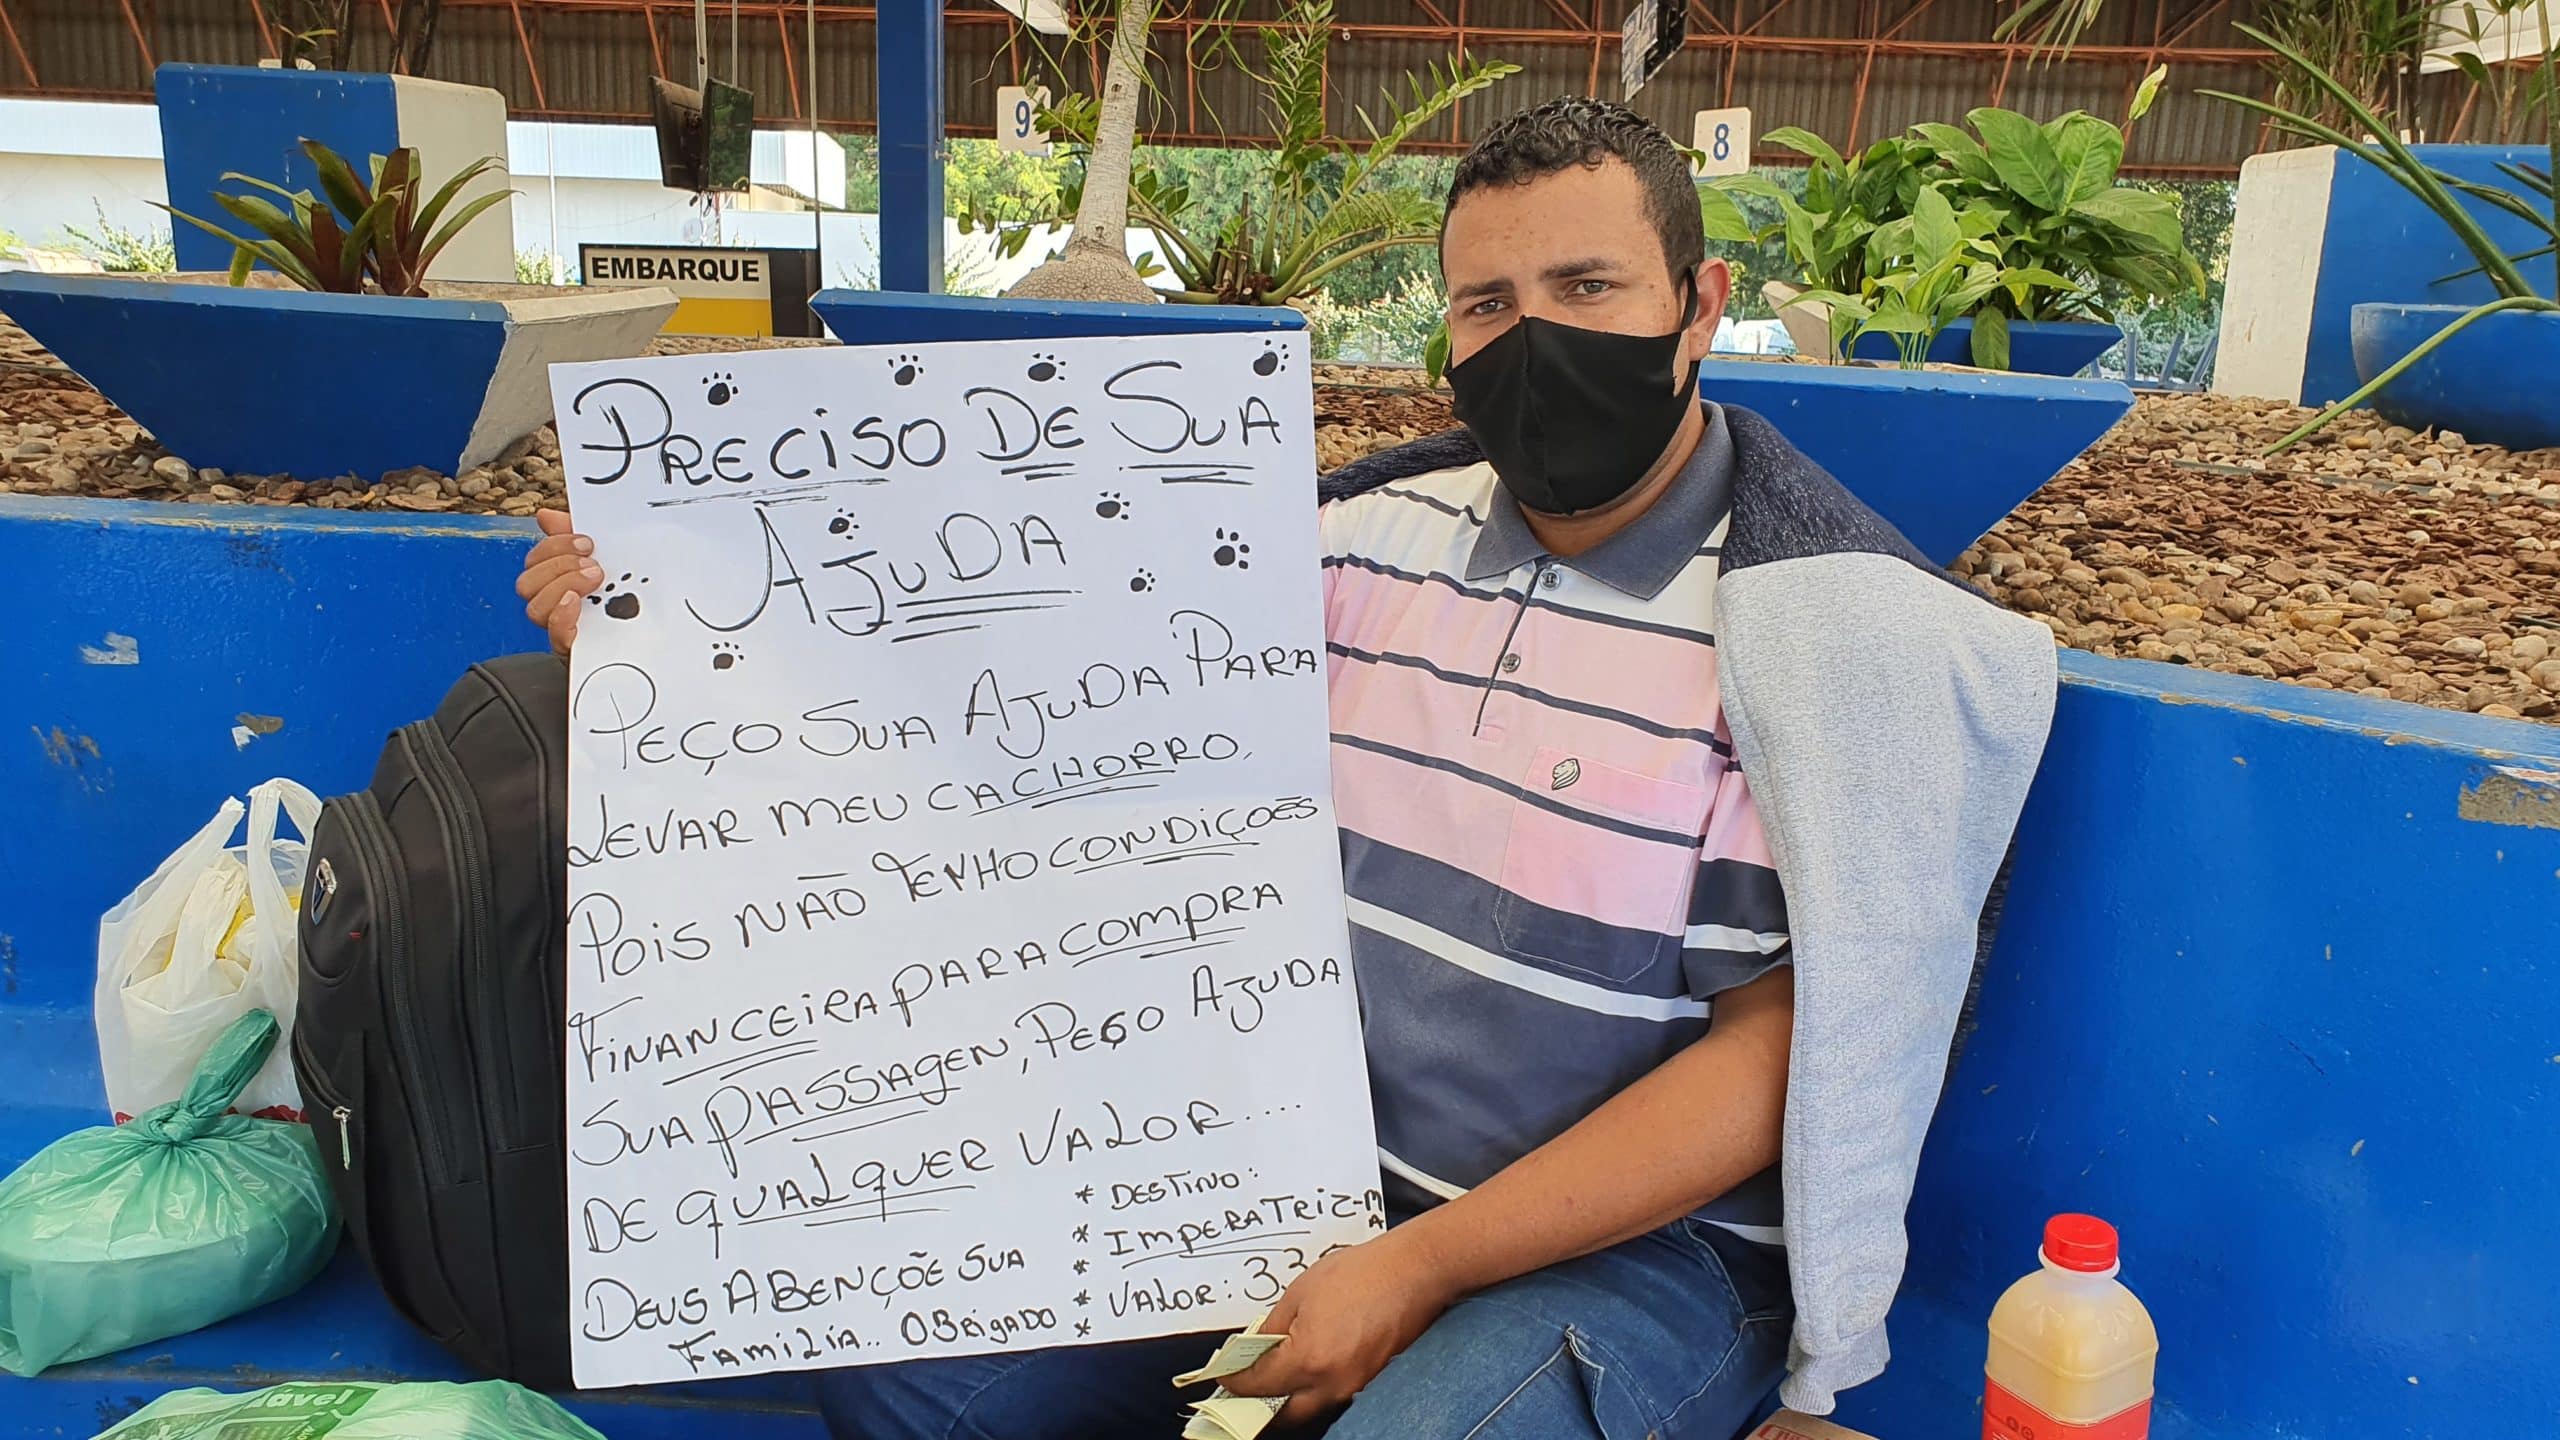 9
8
EMBARQUE
PRECISO DE SUA
AJUDA
PEÇO SUA AJUDA PARA
LEVAR MEU CACHORRO,
POIS NÃO TENHO CONDIÇÕES
FINANCEIRA PARA COMPRA
SUA PASSAGEN, PEÇO AJUDA
DE QUALQUER VALOR....
DEUS ABENÇÕE SUA
FAMILIA.. OBRIGADO
* DESTINO:
* IMPERATRIZ-MA
*
* VALOR: 33
*